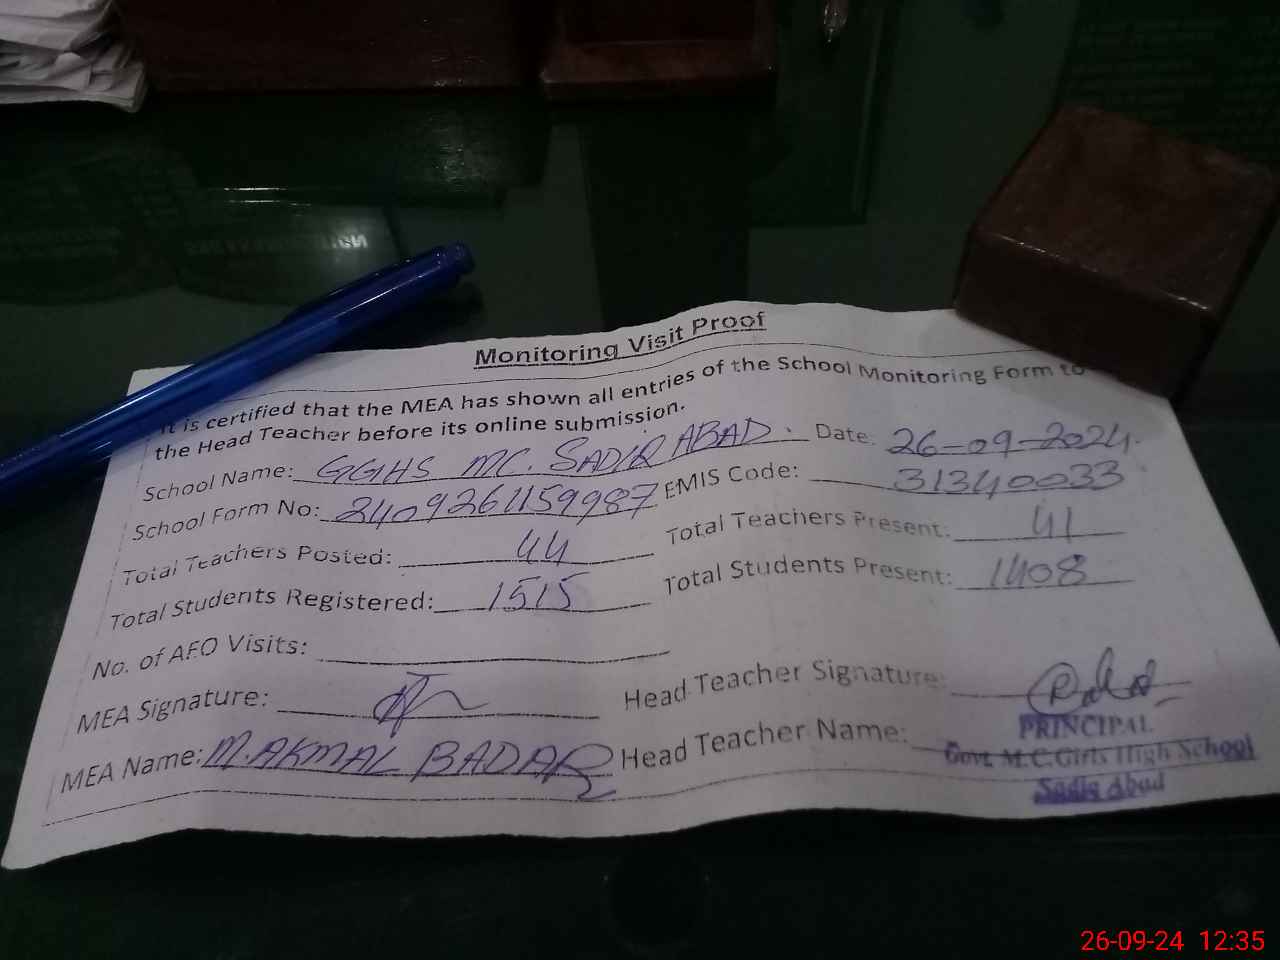 Monitoring Visit Proof
It is certified that the MEA has shown all entries of the School Monitoring Form to
the Head Teacher before its online submission.
School Name: GGHS MC. SADIQ ABAD. Date: 26-09-2024.
School Form No: 240926115998​7 EMIS Code: 31340033
Total Teachers Posted: 44 Total Teachers Present: 41
Total Students Registered: 1515 Total Students Present: 1408
No. of AEO Visits:
MEA Signature: Head Teacher Signature:
PRINCIPAL
MEA Name: M.AKMAL BADAR Head Teacher Name: Govt. M.C.Girls High School
Sadiq Abad
26-09-24 12:35